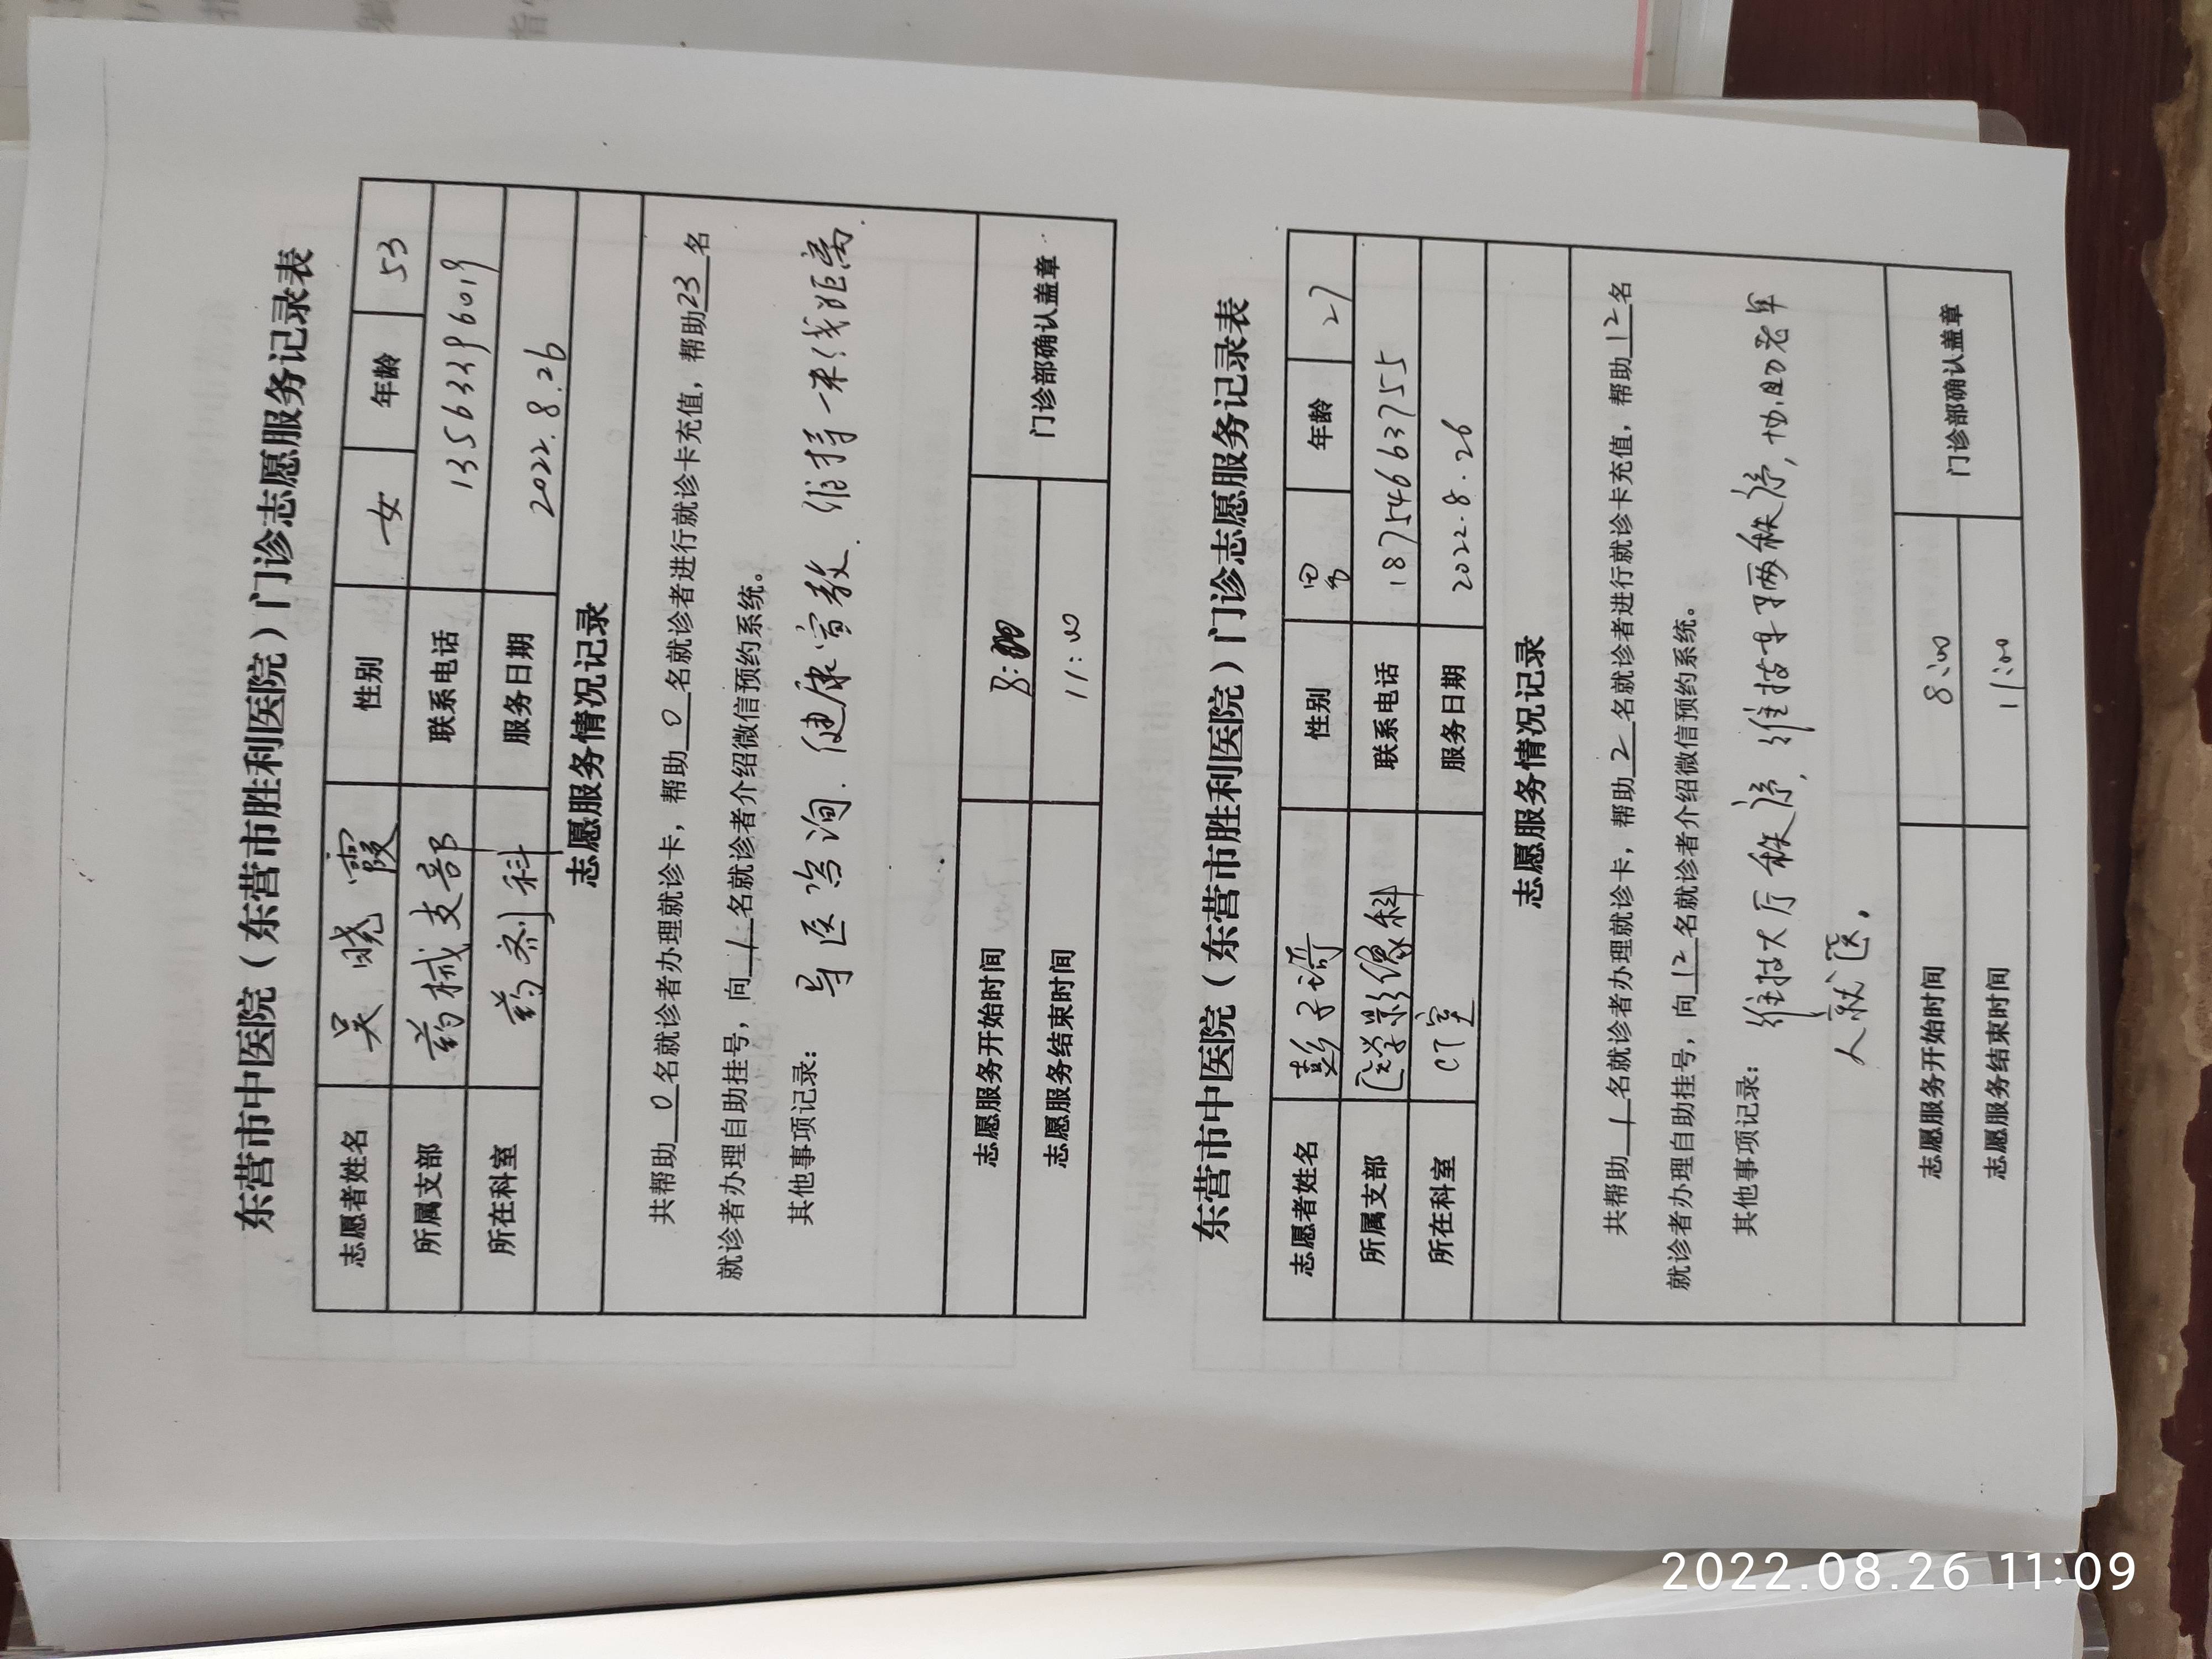 东营市中医院（东营市胜利医院）门诊志愿服务记录表
志愿者姓名 吴晓霞 性别 女 年龄 53
所属支部 药械支部 联系电话 13563396019
所在科室 药剂科 服务日期 2022.8.26
志愿服务情况记录
共帮助 0 名就诊者办理就诊卡，帮助 0 名就诊者进行就诊卡充值，帮助 23 名
就诊者办理自助挂号，向 1 名就诊者介绍微信预约系统。
其他事项记录：
导医咨询.健康宣教.维持一米线距离.
志愿服务开始时间 8: 门诊部确认盖章
志愿服务结束时间 11:00
东营市中医院（东营市胜利医院）门诊志愿服务记录表
志愿者姓名 彭子琦 性别 男 年龄 27
所属支部 医学影像科 联系电话 18754663755
所在科室 CT室 服务日期 2022.8.26
志愿服务情况记录
共帮助 1 名就诊者办理就诊卡，帮助 2 名就诊者进行就诊卡充值，帮助 12 名
就诊者办理自助挂号，向 12 名就诊者介绍微信预约系统。
其他事项记录：
维持大厅秩序，维持 秩序，协助老年
人就医。
志愿服务开始时间 8:00 门诊部确认盖章
志愿服务结束时间 11:00
2022.08.26 11:09